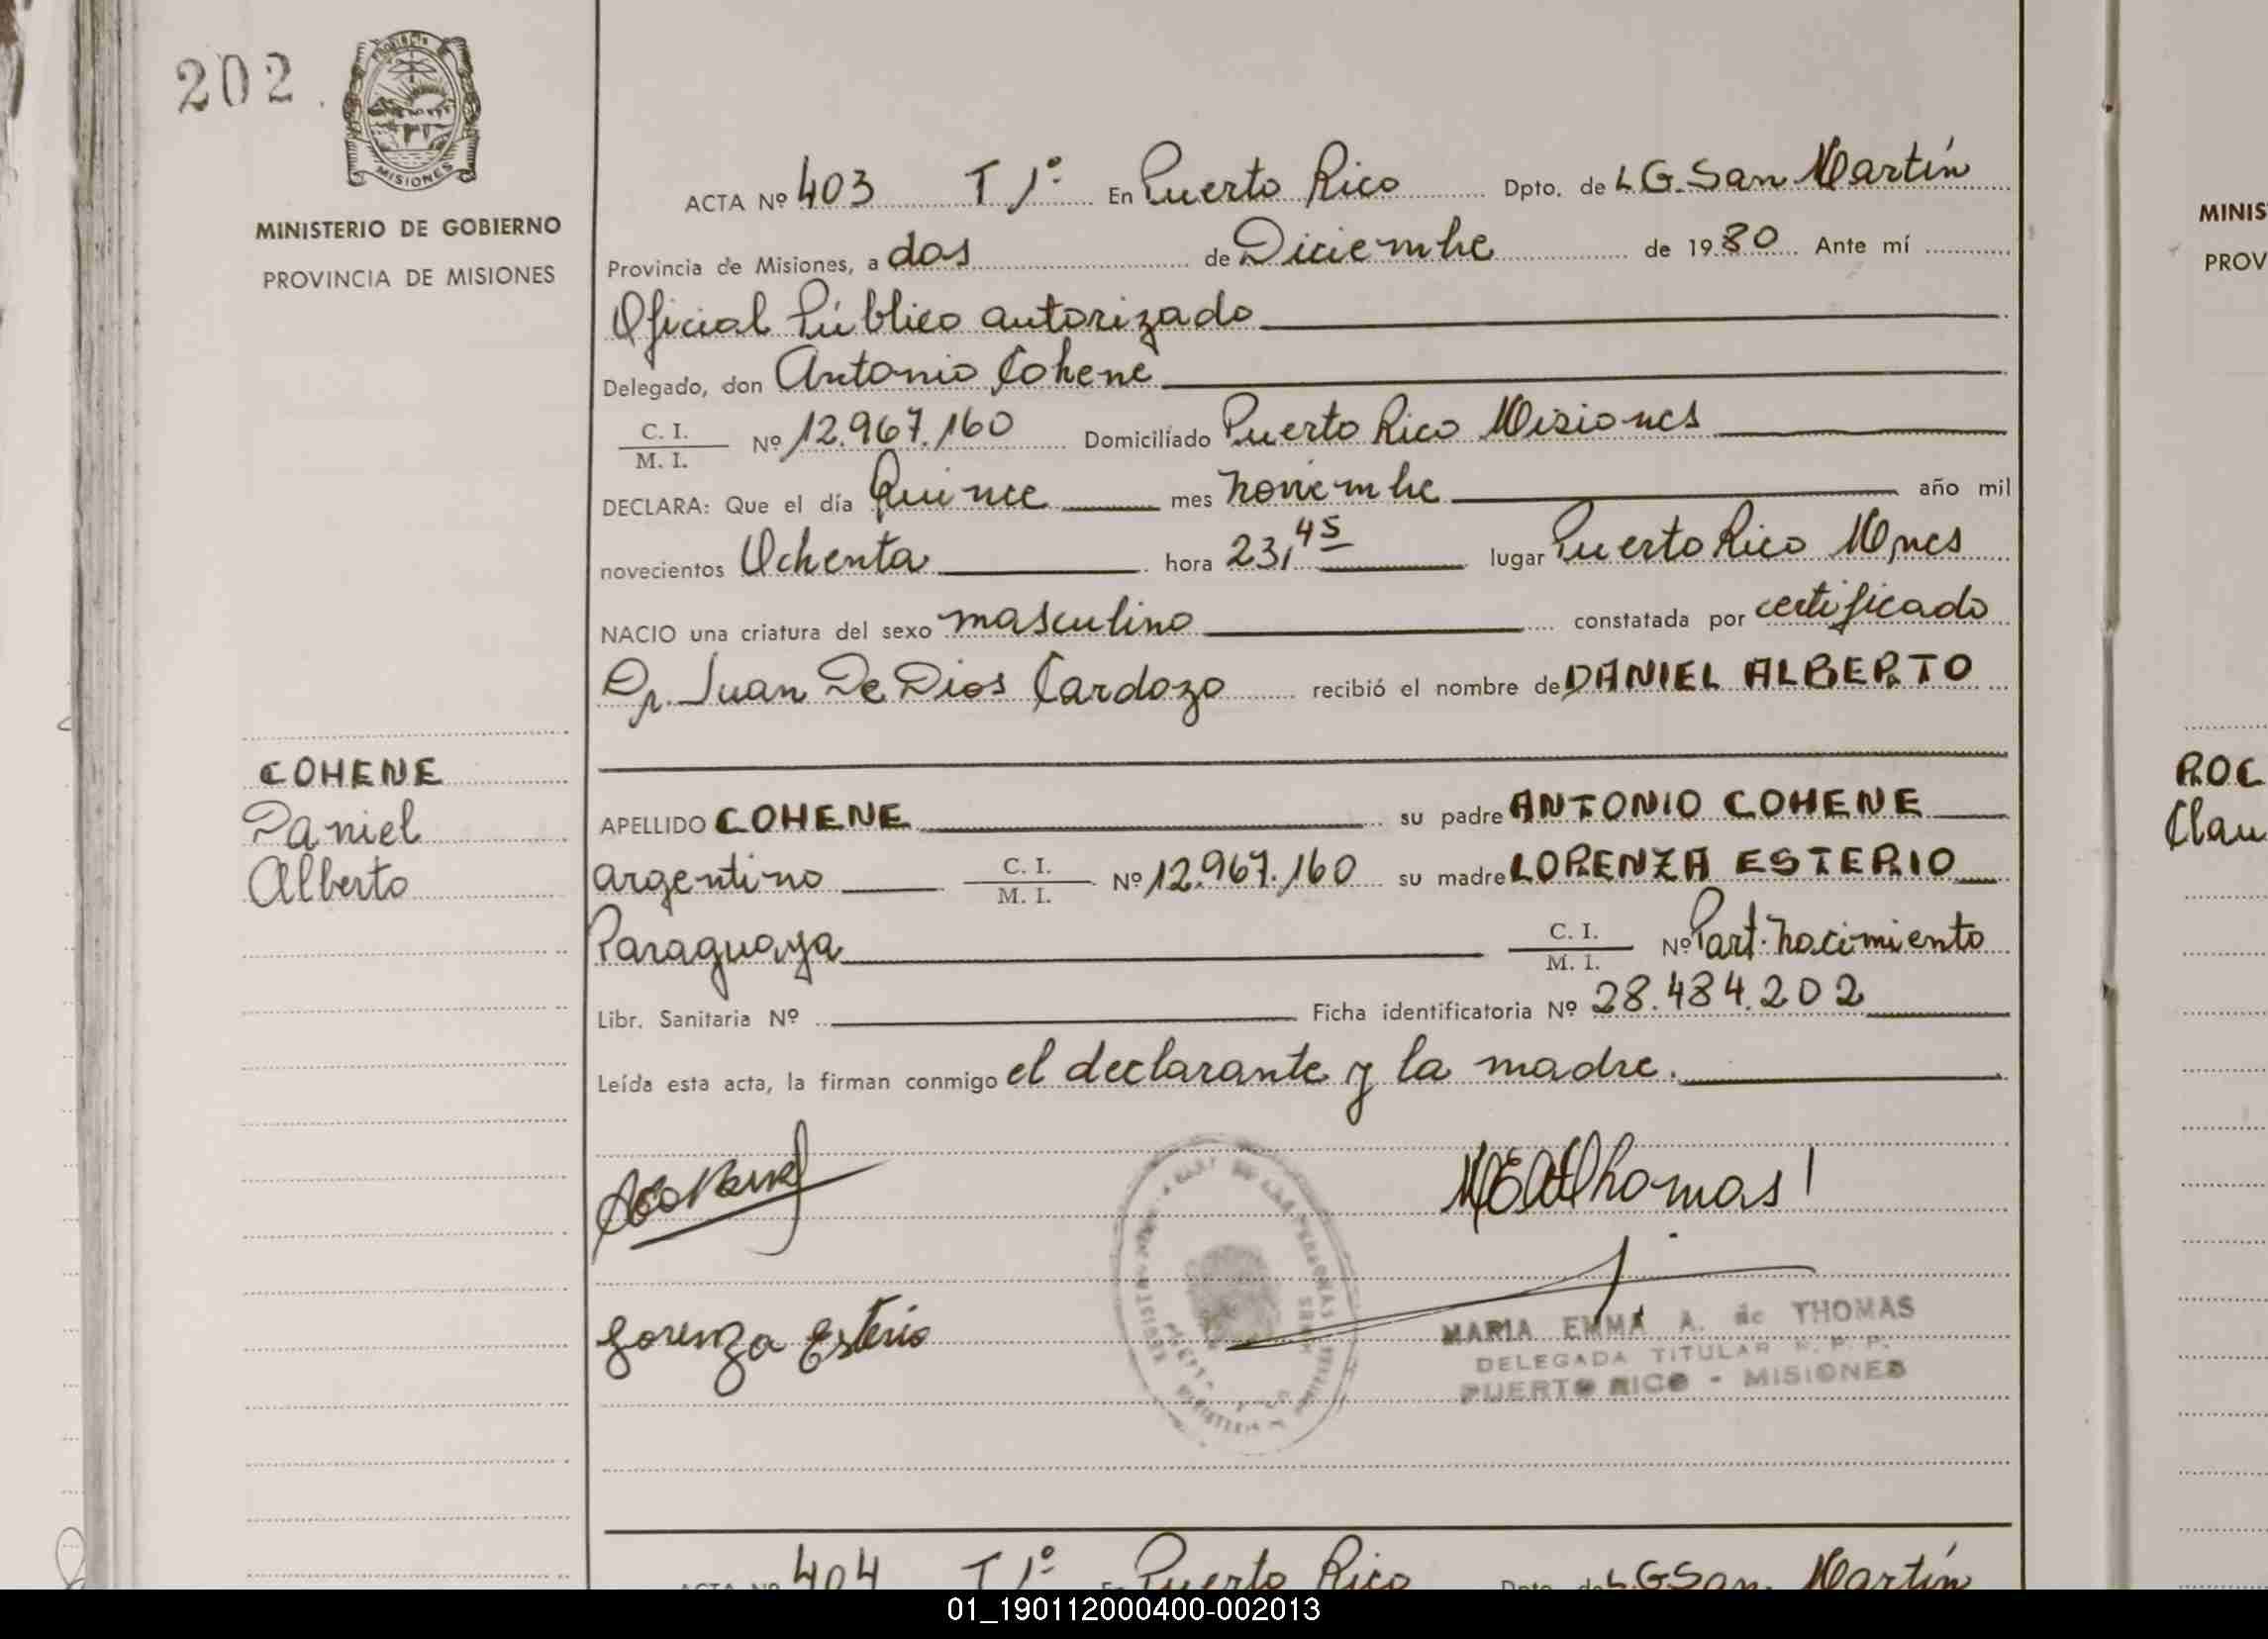 202
PROVINCIA DE MISIONES
MINISTERIO DE GOBIERNO
PROVINCIA DE MISIONES
COHENE
Daniel
Alberto
ACTA Nº 403 T 1º En Puerto Rico Dpto. de L G. San Martín
Provincia de Misiones, a dos de Diciembre de 1980 Ante mí
Oficial Público autorizado
Delegado, don Antonio Cohene
C. I.
M. I.
Nº 12.967.160 Domiciliado Puerto Rico Misiones
DECLARA: Que el día Quince mes noviembre año mil
novecientos Ochenta hora 23,45 lugar Puerto Rico Mnes
NACIO una criatura del sexo masculino constatada por certificado
Dr. Juan De Dios Cardozo recibió el nombre de DANIEL ALBERTO
APELLIDO COHENE su padre ANTONIO COHENE
argentino C. I. M. I. Nº 12.967.160 su madre LORENZA ESTERIO
Paraguaya C. I. M. I. Nº Part. nacimiento
Libr. Sanitaria Nº Ficha identificatoria Nº 28.484.202
Leída esta acta, la firman conmigo el declarante y la madre.
Lorenza Esterio
MARIA EMMA A. de THOMAS
DELEGADA TITULAR R. P. P.
PUERTO RICO - MISIONES
ACTA Nº 404 T 1º En Puerto Rico Dpto. de L G San Martín
MINIS
PROV
ROC
Clau
01_190112000400-002013